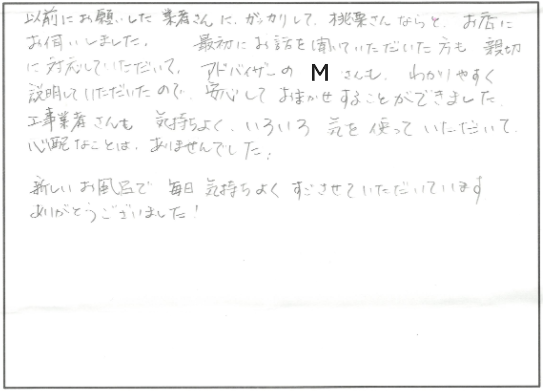 以前にお願いした業者さんに、ガッカリして、桃栗さんならと、お店に
お伺いしました。 最初にお話を聞いていただいた方も 親切
に対応していただいて、アドバイザーの Mさんも、わかりやすく
説明していただいたので、安心しておまかせすることができました。
工事業者さんも 気持ちよく、いろいろ 気を使っていただいて、
心配なことは、ありませんでした。
新しいお風呂で 毎日 気持ちよく すごさせていただいています
ありがとうございました!